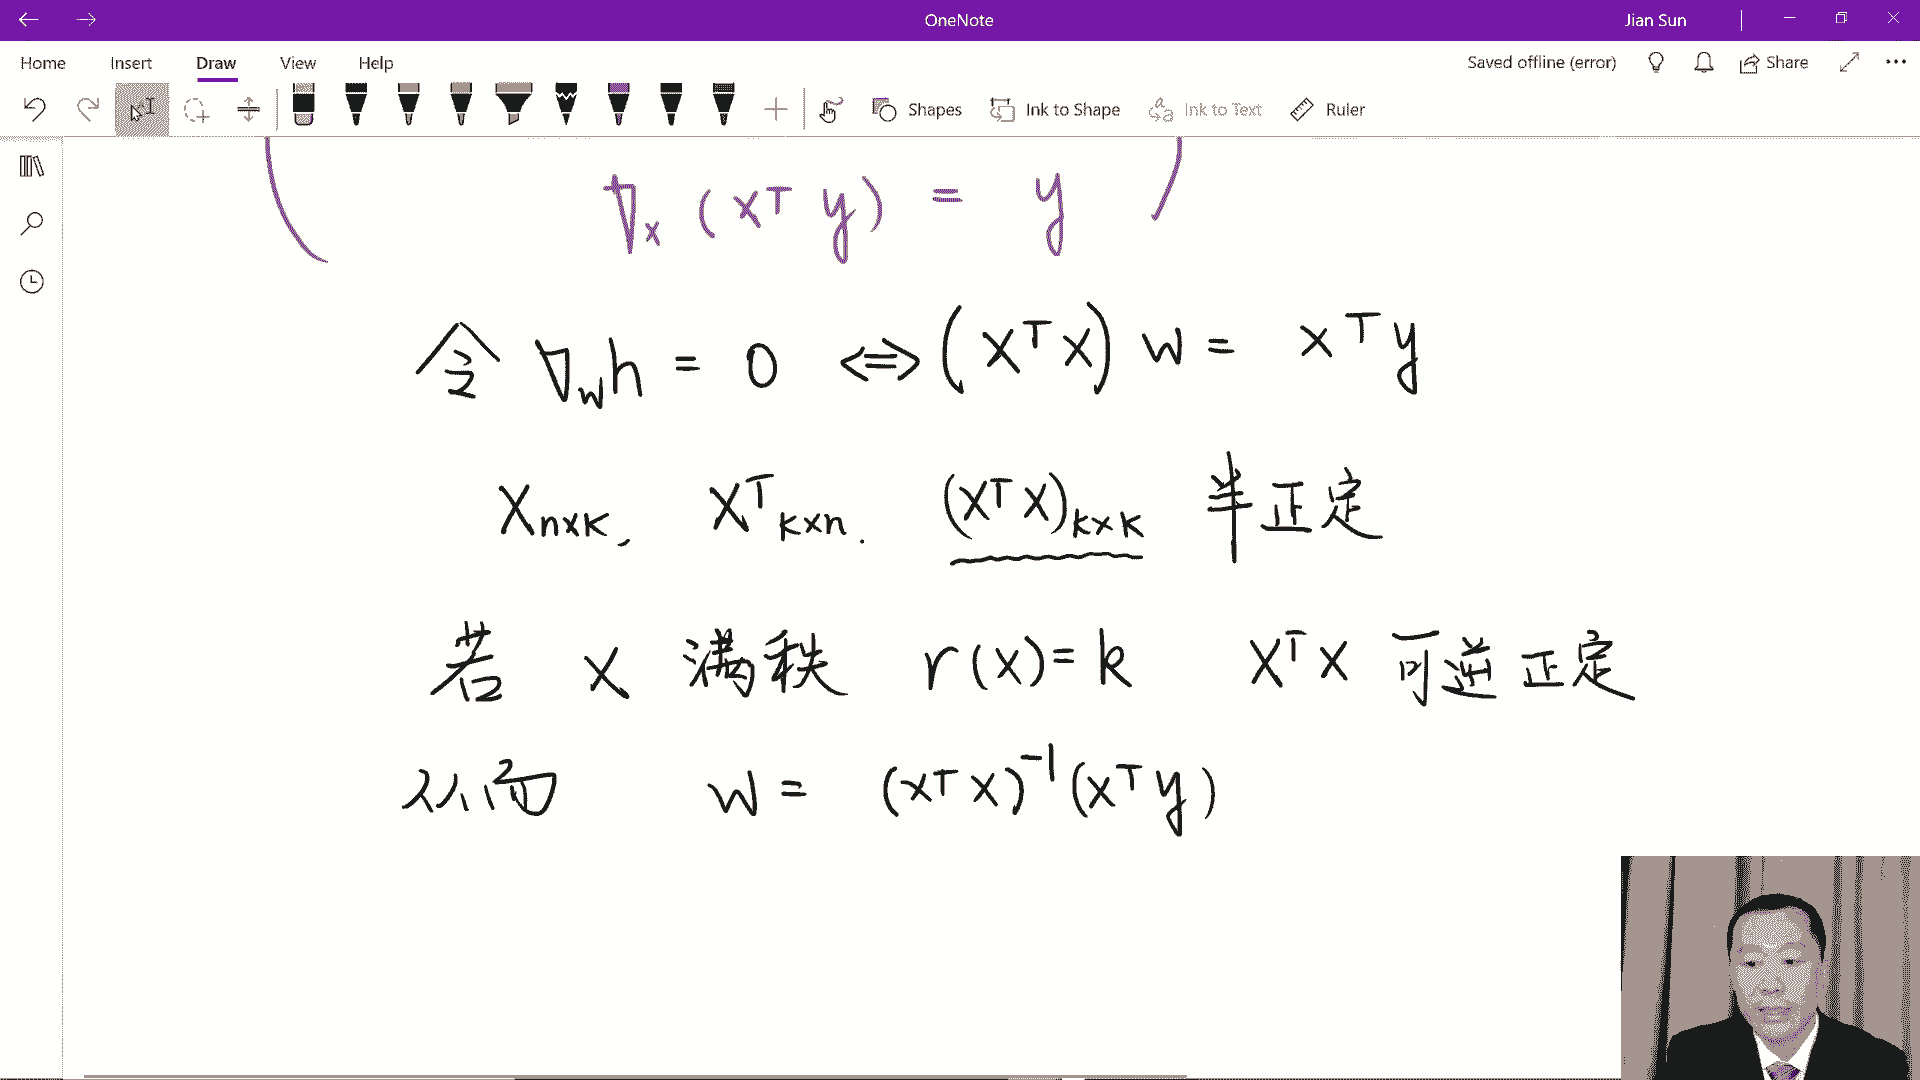 OneNote
Jian Sun
Home Insert Draw View Help
Saved offline (error) Share
Shapes Ink to Shape Ink to Text Ruler
∇ₓ (xᵀ y) = y
令 ∇_w h = 0 ⇔ (XᵀX) w = Xᵀy
X_{n×k}, Xᵀ_{k×n}. (XᵀX)_{k×k} 半正定
若 X 满秩 r(X)=k XᵀX 可逆 正定
从而 w = (XᵀX)⁻¹(Xᵀy)